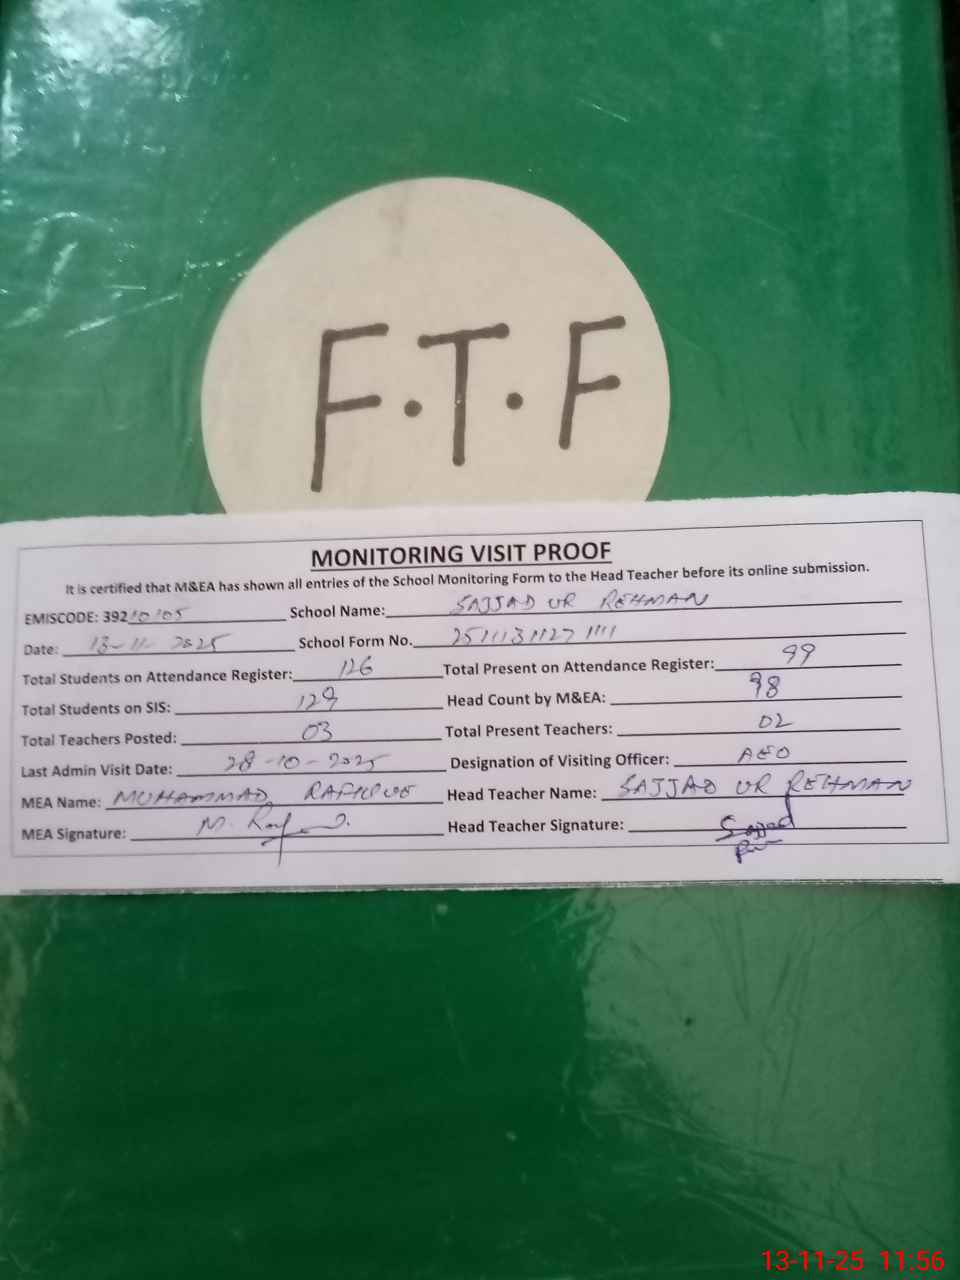 F.T.F
MONITORING VISIT PROOF
It is certified that M&EA has shown all entries of the School Monitoring Form to the Head Teacher before its online submission.
EMISCODE: 39210105 School Name: SAJJAD UR REHMAN
Date: 13-11-2025 School Form No. 25111311271111
Total Students on Attendance Register: 126 Total Present on Attendance Register: 99
Total Students on SIS: 129 Head Count by M&EA: 98
Total Teachers Posted: 03 Total Present Teachers: 02
Last Admin Visit Date: 28-10-2025 Designation of Visiting Officer: AEO
MEA Name: MUHAMMAD RAFIQUE Head Teacher Name: SAJJAD UR REHMAN
MEA Signature: Head Teacher Signature: Sajjad
13-11-25 11:56